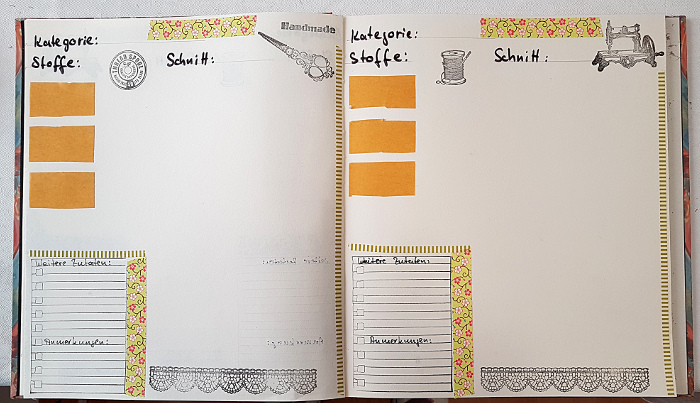 Handmade
Kategorie:
Stoffe:
Schnitt:
Weitere Zutaten:
Anmerkungen:
Kategorie:
Stoffe:
Schnitt:
Weitere Zutaten:
Anmerkungen: